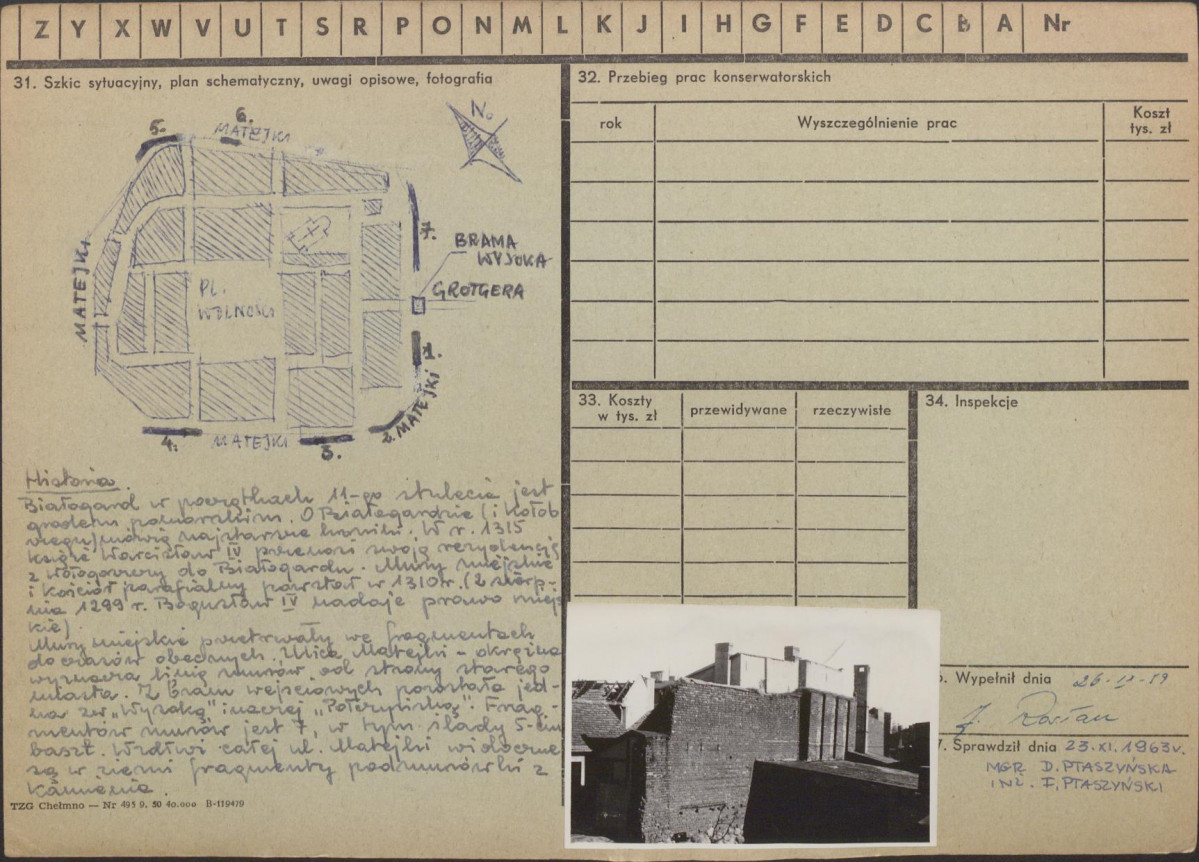 Z Y X W V U T S R P O N M L K J I H G F E D C B A Nr
31. Szkic sytuacyjny, plan schematyczny, uwagi opisowe, fotografia
5.
6.
MATEJKI
N.
7.
BRAMA
WYSOKA
GROTGERA
MATEJKI
PL.
WOLNOŚCI
1.
2. MATEJKI
4.
MATEJKI
3.
Historia.
Białogard w początkach 11-go stulecia jest
grodem pomorskim. O Białogardzie (i Kołob
rzegu) mówią najstarsze kroniki. W r. 1315
książę Warcisław IV przenosi swoją rezydencję
z Wołogoszczy do Białogardu. Mury miejskie
i kościół parafialny powstał w 1310 r. (2 sierp-
nia 1299 r. Bogusław IV nadaje prawo miej
skie)
Mury miejskie przetrwały we fragmentach
do czasów obecnych. Ulica Matejki - okrężna
wyznacza linię murów od strony starego
miasta. Z bram wejściowych pozostała jed-
na zw. „Wysoką" inaczej „Połczyńską". Frag-
mentów murów jest 7, w tym ślady 5-ciu
baszt. Wzdłuż całej ul. Matejki widoczne
są w ziemi fragmenty podmurówki z
kamienia.
TZG Chełmno — Nr 495 9. 50 40.000 B-119479
32. Przebieg prac konserwatorskich
rok Wyszczególnienie prac Koszt
tys. zł
33. Koszty
w tys. zł przewidywane rzeczywiste
34. Inspekcje
Wypełnił dnia
7. Sprawdził dnia 23.XI.1963 r.
MGR D. PTASZYŃSKA
INŻ. F. PTASZYŃSKI